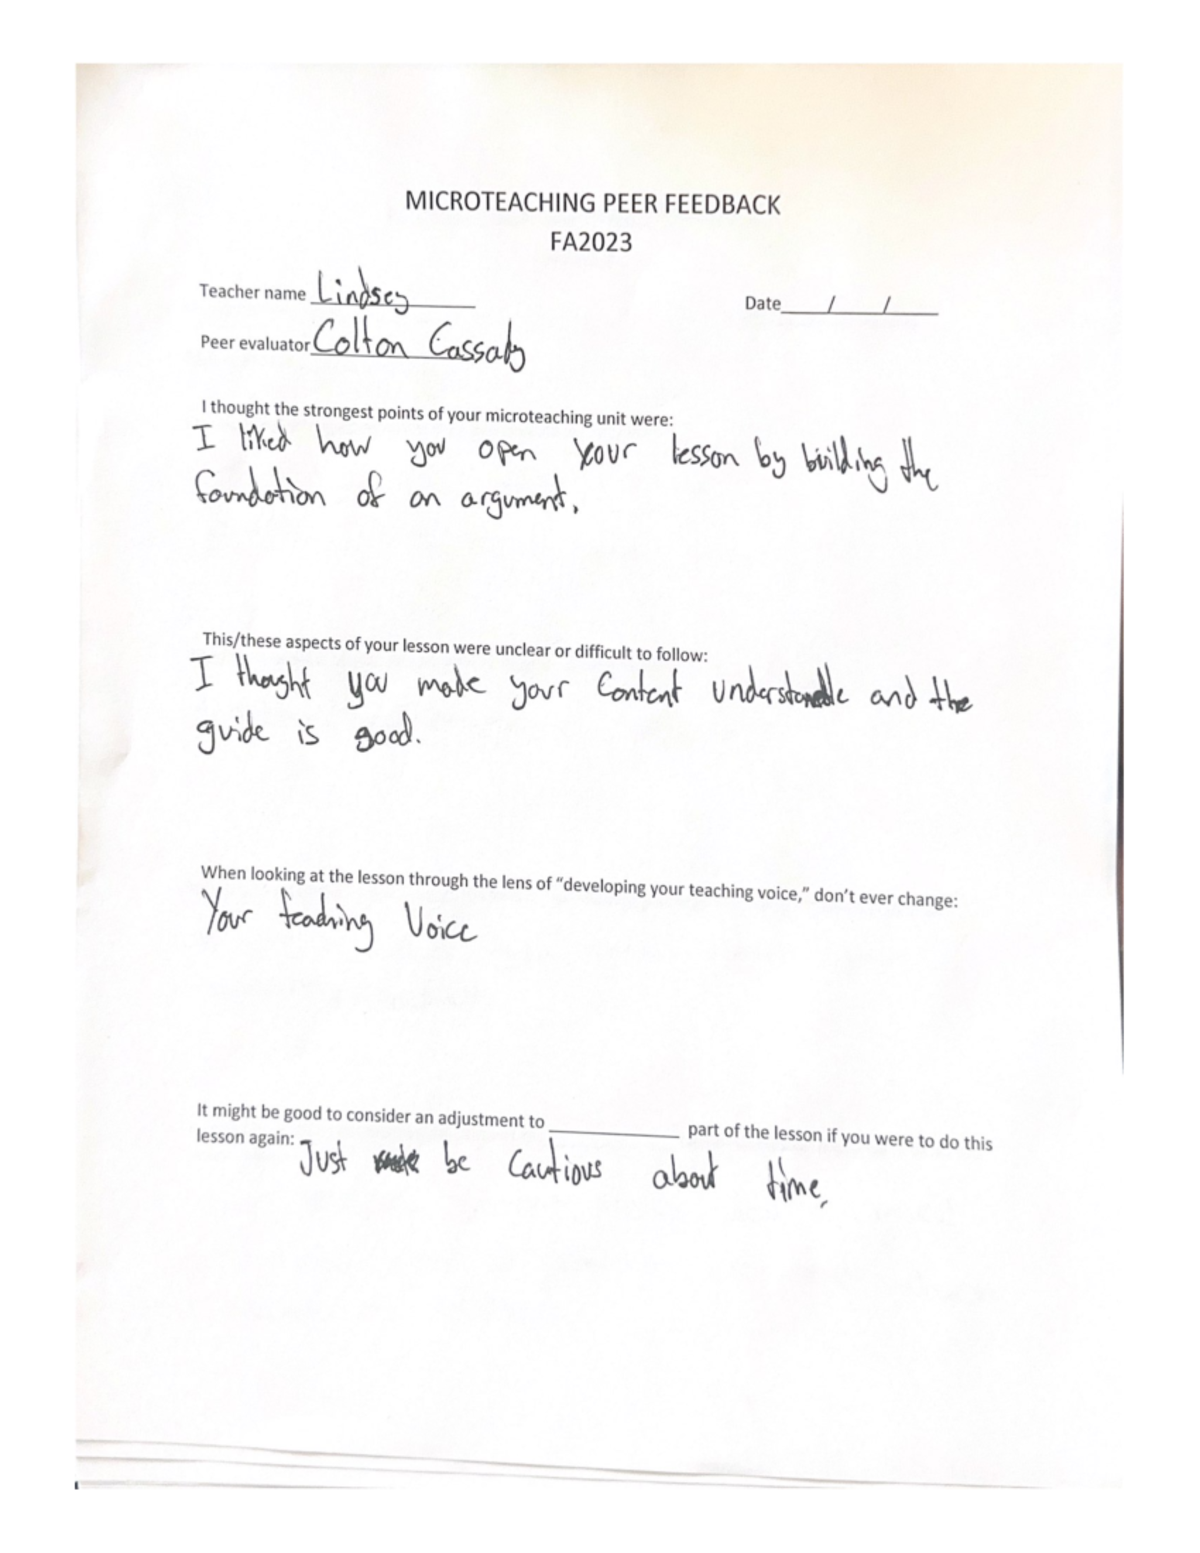 MICROTEACHING PEER FEEDBACK
FA2023
Teacher name Lindsey
Date / /
Peer evaluator Colton Cassady
I thought the strongest points of your microteaching unit were:
I liked how you open your lesson by building the
foundation of an argument.
This/these aspects of your lesson were unclear or difficult to follow:
I thought you made your content understandable and the
guide is good.
When looking at the lesson through the lens of “developing your teaching voice,” don’t ever change:
Your teaching Voice
It might be good to consider an adjustment to __________ part of the lesson if you were to do this
lesson again: Just be cautious about time.